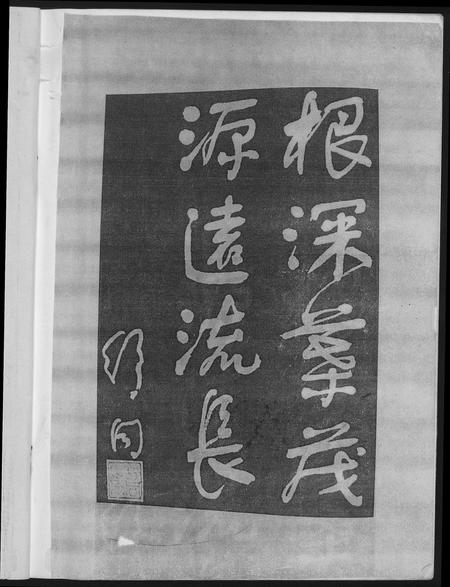 根深葉茂
源遠流長
舒同